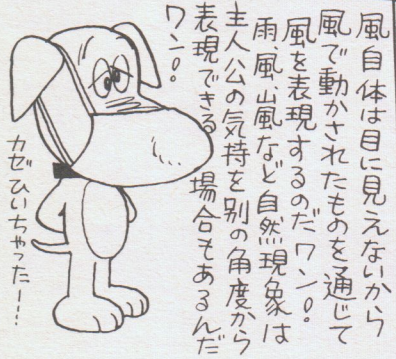 風自体は目に見えないから
風で動かされたものを通じて
風を表現するのだワン!!
雨、風、嵐など自然現象は
主人公の気持を別の角度から
表現できる場合もあるんだ
ワン!!
カゼひいちゃったー!!!